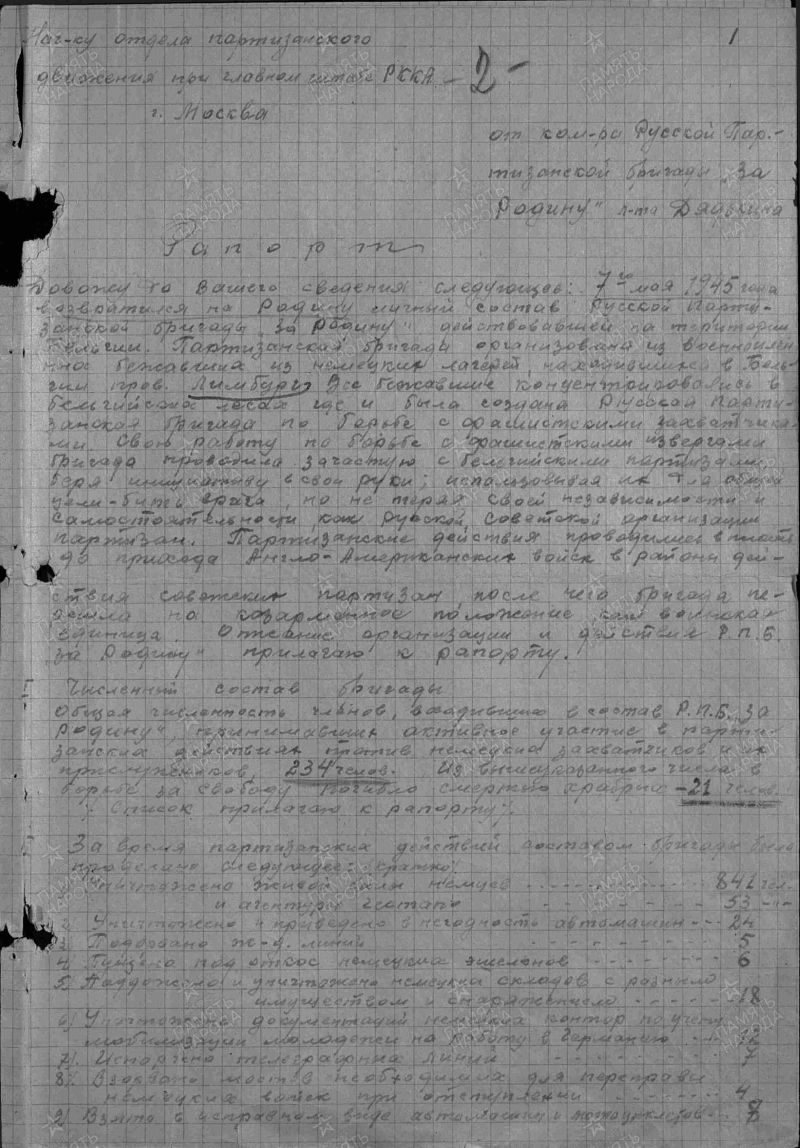 Нач-ку отдела партизанского
движения при главном штабе РККА - 2 -
1
г. Москва
от ком-ра Русской Пар-
тизанской бригады „За
Родину" л-та Дядькина
Рапорт
Довожу до Вашего сведения следующее: 7го мая 1945 года
возвратился на Родину личный состав Русской Парти-
занской бригады „За Родину", действовавшей на територии
Бельгии. Партизанская бригада организована из военноплен-
ных бежавших из немецких лагерей, находившихся в Бель-
гии пров. Лимбург. Все бежавшие концентрировались в
бельгийских лесах где и была создана Русская Парти-
занская бригада по борьбе с фашистскими захватчика-
ми. Свою работу по борьбе с фашистскими извергами
бригада проводила зачастую с бельгийскими партизами
беря инициативу в свои руки; использовывая их для общей
цели - бить врага, но не теряя своей независимости и
самостоятельности как русской, советской организации
партизан. Партизанские действия проводились вплоть
до прихода Англо-Американских войск в районы дей-
ствия советских партизан после чего бригада пе-
решла на козарменное положение как воинская
единица. Описание организации и действия Р.П.Б.
за Родину" прилагаю к рапорту.
I Численный состав бригады
Общая численность членов, входивших в состав Р.П.Б. „За
Родину", принимавших активное участие в парти-
занских действиях против немецких захватчиков и их
прислужеников 234 челов. Из вышеуказанного числа в
борьбе за свободу погибло смертью храбрых - 21 челов.
/Список прилагаю к рапорту/.
За время партизанских действий составом бригады было
проделано следующее: /кратко/
Уничтожено живой силы немцев - - - - 841 чел.
и агентуры гестапо - - - - 53 -"-
2/ Уничтожено и приведено в негодность автомашин - - - 24
3/ Подорвано ж-д. линий - - - - 5
4/ Пущено под откос немецких эшелонов - - - - 6
5/ Подожжено и уничтожено немецких складов с разным
имуществом и снаряжением - - - - 18
6/ Уничтожено документаций немецких контор по учету
мобилизации молодежи на работу в Германию - - - 12
7/ Испорчено телеграфных линий - - - - 7
8/ Взорвано мостов необходимых для переправы
немецких войск при отступлении - - - - 4
9/ Взято в исправном виде автомашин и мотоциклетов - - 8
ПАМЯТЬ НАРОДА